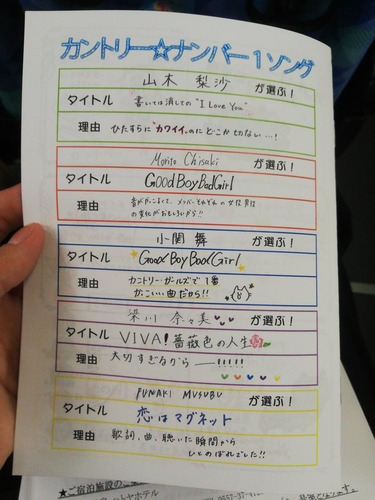 カントリー☆ナンバー1ソング
山木 梨沙 が選ぶ!
タイトル 書いては消しての "I Love You"
理由 ひたすらに "カワイイ" のに どこか切ない…!
Morito Chisaki が選ぶ!
タイトル GOOd BOY BAd Girl
理由 音がかっこよくて、メンバーそれぞれの女役 男役
の変化がおもしろいから!!
小関 舞 が選ぶ!
タイトル Good Boy Bad Girl
理由 カントリー・ガールズで1番
かっこいい曲だから!!
梁川 奈々美 が選ぶ!
タイトル VIVA!薔薇色の人生
理由 大切すぎるから ――!!!!!
FUNAKI MUSUBU が選ぶ!
タイトル 恋はマグネット
理由 歌詞、曲、聴いた瞬間から
ひとめぼれでした!!
★ご宿泊施設のご
ホテル
0557-37-